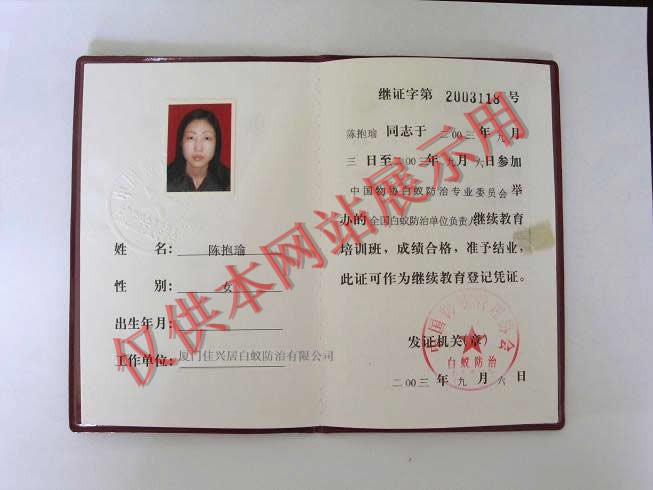 姓 名: 陈抱瑜
性 别: 女
出生年月:
工作单位: 厦门佳兴居白蚁防治有限公司
继证字第 2003118 号
陈抱瑜 同志于 二00三 年 九 月
三 日至二00三年 九 月 六 日参加
中国物协白蚁防治专业委员会 举
办的 全国白蚁防治单位负责人 继续教育
培训班，成绩合格，准予结业，
此证可作为继续教育登记凭证。
发证机关(章)
白蚁防治
二00三 年 九 月 六 日
仅供本网站展示用